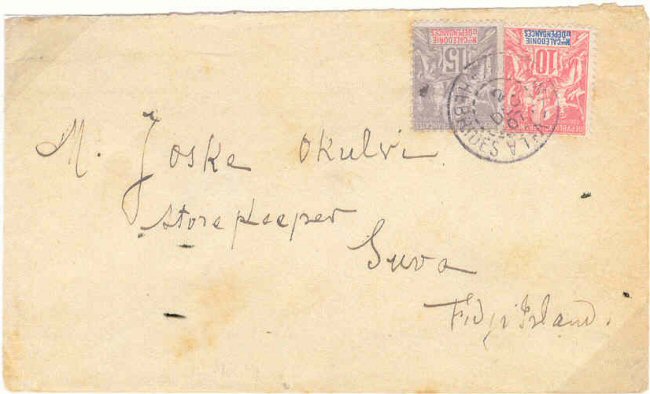 Nlle CALEDONIE ET DÉPENDANCES
15
Nlle CALEDONIE ET DÉPENDANCES
10
HEBRIDES
M. Joske Okulvi
Storekeeper
Suva
Fidji Island.